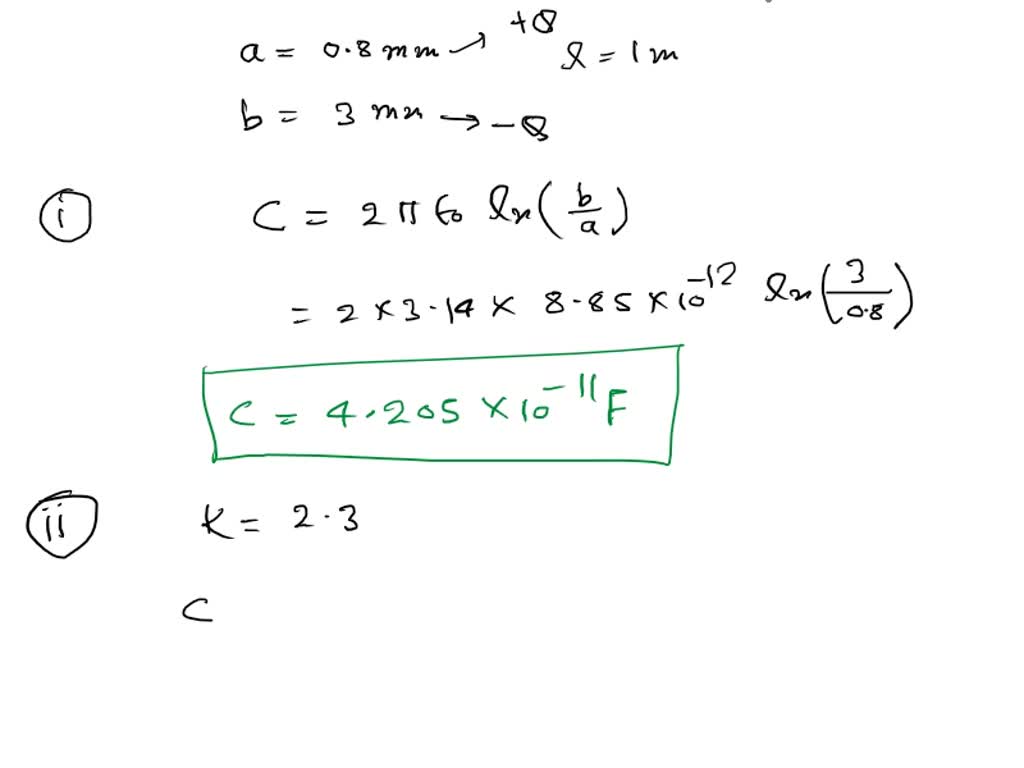 a = 0.8 mm → +Q l = 1 m
b = 3 mm → -Q
i C = 2π ε₀ ln(b/a)
= 2 × 3.14 × 8.85 × 10⁻¹² ln(3/0.8)
C = 4.205 × 10⁻¹¹ F
ii K = 2.3
C